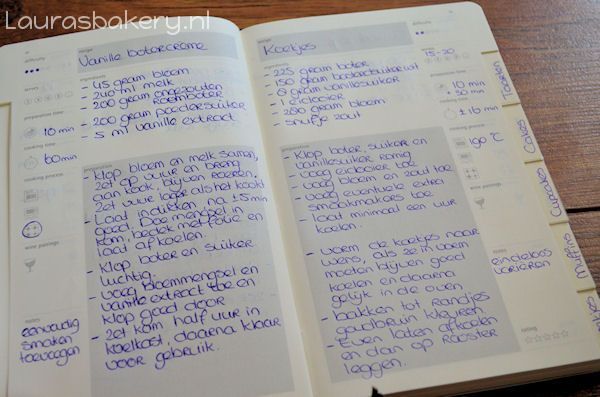 Laurasbakery.nl
recipe
Vanille botercrème
ingredients
- 45 gram bloem
- 240 ml melk
- 200 gram ongezouten
roomboter
- 200 gram poedersuiker
- 5 ml vanille extract
preparation time
10 min
cooking time
60 min
cooking process
wine pairings
notes
eenvoudig
smaken
toevoegen
preparation
- Klop bloem en melk samen,
zet op vuur en breng
aan kook, blijven roeren.
Zet vuur lager als het kookt
- Laat indikken na ± 5 min
goed. Doe mengsel in
kom, bedek met folie en
laat afkoelen.
- Klop boter en suiker
luchtig.
- Voeg bloemmengsel en
vanille extract toe en
klop goed door
- Zet kom half uur in
koelkast, daarna klaar
voor gebruik.
recipe
Koekjes
ingredients
- 225 gram boter
- 150 gram
- 8 gram vanillesuiker
- 1 eidooier
- 280 gram bloem
- snufje zout
preparation
- Klop boter, suiker en
vanillesuiker romig
- Voeg eidooier toe
- Voeg bloem en zout toe
- Voeg eventuele extra
smaakmakers toe
- laat minimaal een uur
koelen.
- Vorm de koekjes naar
wens, als ze in vorm
moeten blijven goed
koelen en daarna
gelijk in de oven
- bakken tot randjes
goudbruin kleuren
- Even laten afkoelen
en dan op rooster
leggen.
difficulty
15-20
preparation time
10 min
cooking time
± 10 min
cooking process
190 °C
wine pairings
notes
eindeloos
variëren
rating
Taarten
Cakes
Cupcakes
Muffins